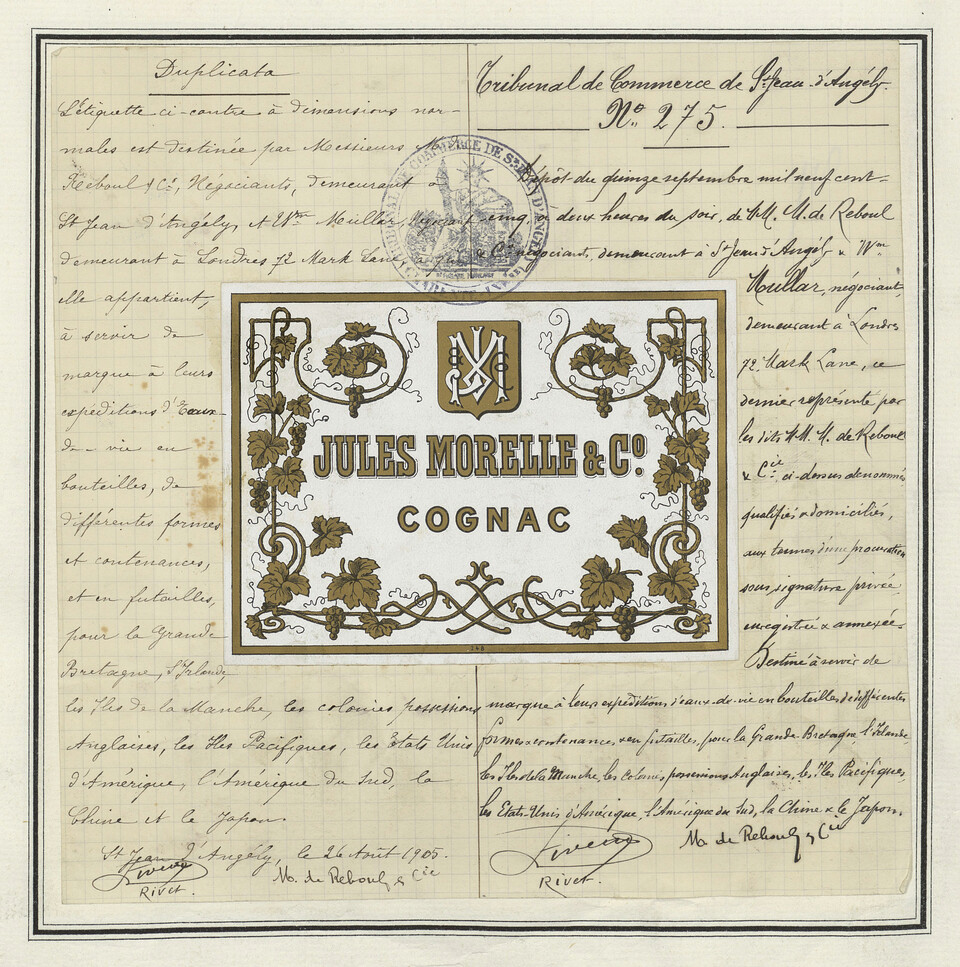 Duplicata
L'étiquette ci-contre à dimensions nor-
males est destinée par Messieurs M. de
Reboul & Cie, Négociants, demeurant à
St Jean d'Angély, et Wm Mullar, Négociant
demeurant à Londres 72 Mark Lane, à qui
elle appartient,
à servir de
marque à leurs
expéditions d'Eaux-
de-vie en
bouteilles, de
différentes formes
et contenances,
et en futailles,
pour la Grande
Bretagne, l'Irlande,
les Iles de la Manche, les colonies possessions
Anglaises, les Iles Pacifiques, les Etats Unis
d'Amérique, l'Amérique du Sud, la
Chine et le Japon.
St Jean d'Angély, le 26 Août 1905.
M. de Reboul & Cie
Rivet.
Tribunal de Commerce de St Jean d'Angély.
No. 275.
Dépôt du quinze septembre mil neuf cent-
cinq, à deux heures du soir, de MM. M. de Reboul
& Cie négociants, demeurant à St Jean d'Angély & Wm
Mullar, négociant,
demeurant à Londres
72 Mark Lane, ce
dernier représenté par
les dits MM. M. de Reboul
& Cie ci-dessus dénommés
qualifiés & domiciliés,
aux termes d'une procuration
sous signature privée
enregistrée & annexée.
Destiné à servir de
marque à leurs expéditions d'eaux-de-vie en bouteilles de différentes
formes & contenances & en futailles, pour la Grande-Bretagne, l'Irlande,
les Iles de la Manche, les Colonies possessions Anglaises, les Iles Pacifiques,
les Etats-Unis d'Amérique, l'Amérique du Sud, la Chine & le Japon.
M. de Reboul & Cie
Rivet.
TRIBUNAL DE COMMERCE DE ST JEAN D'ANGELY
JULES MORELLE & Co.
COGNAC